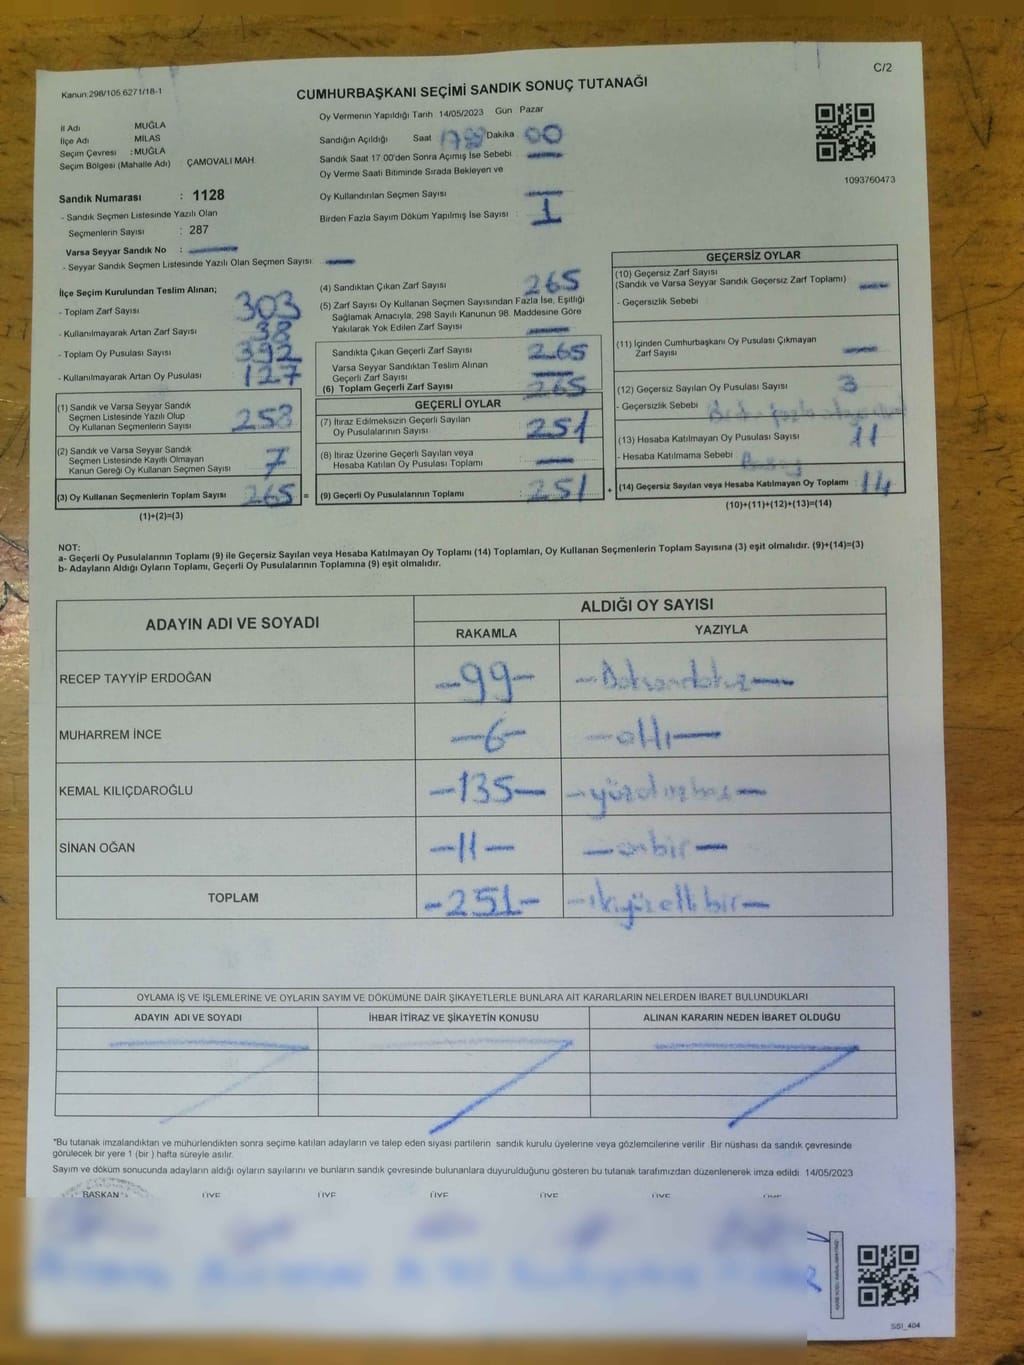 C/2
Kanun:298/105.6271/18-1
CUMHURBAŞKANI SEÇİMİ SANDIK SONUÇ TUTANAĞI
Oy Vermenin Yapıldığı Tarih 14/05/2023 Gün Pazar
İl Adı MUĞLA
İlçe Adı MİLAS
Seçim Çevresi : MUĞLA
Seçim Bölgesi (Mahalle Adı) ÇAMOVALI MAH.
Sandığın Açıldığı Saat Dakika 00
Sandık Saat 17.00'den Sonra Açımış İse Sebebi
Oy Verme Saati Bitiminde Sırada Bekleyen ve
Oy Kullandırılan Seçmen Sayısı
Birden Fazla Sayım Döküm Yapılmış İse Sayısı : 1
1093760473
Sandık Numarası : 1128
- Sandık Seçmen Listesinde Yazılı Olan
Seçmenlerin Sayısı : 287
Varsa Seyyar Sandık No :
- Seyyar Sandık Seçmen Listesinde Yazılı Olan Seçmen Sayısı:
İlçe Seçim Kurulundan Teslim Alınan;
- Toplam Zarf Sayısı 303
- Kullanılmayarak Artan Zarf Sayısı 38
- Toplam Oy Pusulası Sayısı 392
- Kullanılmayarak Artan Oy Pusulası 127
(1) Sandık ve Varsa Seyyar Sandık
Seçmen Listesinde Yazılı Olup
Oy Kullanan Seçmenlerin Sayısı 258
(2) Sandık ve Varsa Seyyar Sandık
Seçmen Listesinde Kayıtlı Olmayan
Kanun Gereği Oy Kullanan Seçmen Sayısı 7
(3) Oy Kullanan Seçmenlerin Toplam Sayısı 265 =
(1)+(2)=(3)
(4) Sandıktan Çıkan Zarf Sayısı 265
(5) Zarf Sayısı Oy Kullanan Seçmen Sayısından Fazla İse, Eşitliği
Sağlamak Amacıyla, 298 Sayılı Kanunun 98. Maddesine Göre
Yakılarak Yok Edilen Zarf Sayısı
Sandıkta Çıkan Geçerli Zarf Sayısı 265
Varsa Seyyar Sandıktan Teslim Alınan
Geçerli Zarf Sayısı
(6) Toplam Geçerli Zarf Sayısı 265
GEÇERLİ OYLAR
(7) İtiraz Edilmeksizin Geçerli Sayılan
Oy Pusulalarının Sayısı : 251
(8) İtiraz Üzerine Geçerli Sayılan veya
Hesaba Katılan Oy Pusulası Toplamı
(9) Geçerli Oy Pusulalarının Toplamı : 251 +
GEÇERSİZ OYLAR
(10) Geçersiz Zarf Sayısı
(Sandık ve Varsa Seyyar Sandık Geçersiz Zarf Toplamı)
- Geçersizlik Sebebi
(11) İçinden Cumhurbaşkanı Oy Pusulası Çıkmayan
Zarf Sayısı
(12) Geçersiz Sayılan Oy Pusulası Sayısı 3
- Geçersizlik Sebebi
(13) Hesaba Katılmayan Oy Pusulası Sayısı 11
- Hesaba Katılmama Sebebi
(14) Geçersiz Sayılan veya Hesaba Katılmayan Oy Toplamı : 14
(10)+(11)+(12)+(13)=(14)
NOT:
a- Geçerli Oy Pusulalarının Toplamı (9) ile Geçersiz Sayılan veya Hesaba Katılmayan Oy Toplamı (14) Toplamları, Oy Kullanan Seçmenlerin Toplam Sayısına (3) eşit olmalıdır. (9)+(14)=(3)
b- Adayların Aldığı Oyların Toplamı, Geçerli Oy Pusulalarının Toplamına (9) eşit olmalıdır.
ADAYIN ADI VE SOYADI
ALDIĞI OY SAYISI
RAKAMLA YAZIYLA
RECEP TAYYİP ERDOĞAN -99- -Doksandokuz-
MUHARREM İNCE -6- -altı-
KEMAL KILIÇDAROĞLU -135- -yüzotuzbeş-
SİNAN OĞAN -11- -onbir-
TOPLAM -251- -ikiyüzellibir-
OYLAMA İŞ VE İŞLEMLERİNE VE OYLARIN SAYIM VE DÖKÜMÜNE DAİR ŞİKAYETLERLE BUNLARA AİT KARARLARIN NELERDEN İBARET BULUNDUKLARI
ADAYIN ADI VE SOYADI İHBAR İTİRAZ VE ŞİKAYETİN KONUSU ALINAN KARARIN NEDEN İBARET OLDUĞU
"Bu tutanak imzalandıktan ve mühürlendikten sonra seçime katılan adayların ve talep eden siyasi partilerin sandık kurulu üyelerine veya gözlemcilerine verilir. Bir nüshası da sandık çevresinde
görülecek bir yere 1 (bir ) hafta süreyle asılır.
Sayım ve döküm sonucunda adayların aldığı oyların sayılarını ve bunların sandık çevresinde bulunanlara duyurulduğunu gösteren bu tutanak tarafımızdan düzenlenerek imza edildi. 14/05/2023
BAŞKAN ÜYE ÜYE ÜYE ÜYE ÜYE
SSI_404